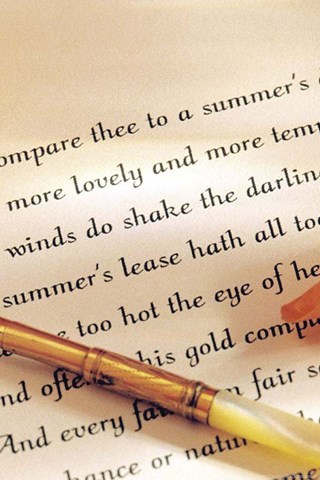 ompare thee to a summer's
more lovely and more temp
winds do shake the darlin
summer's lease hath all too
too hot the eye of he
nd ofte his gold comp
And every fa fair s
hance or natu